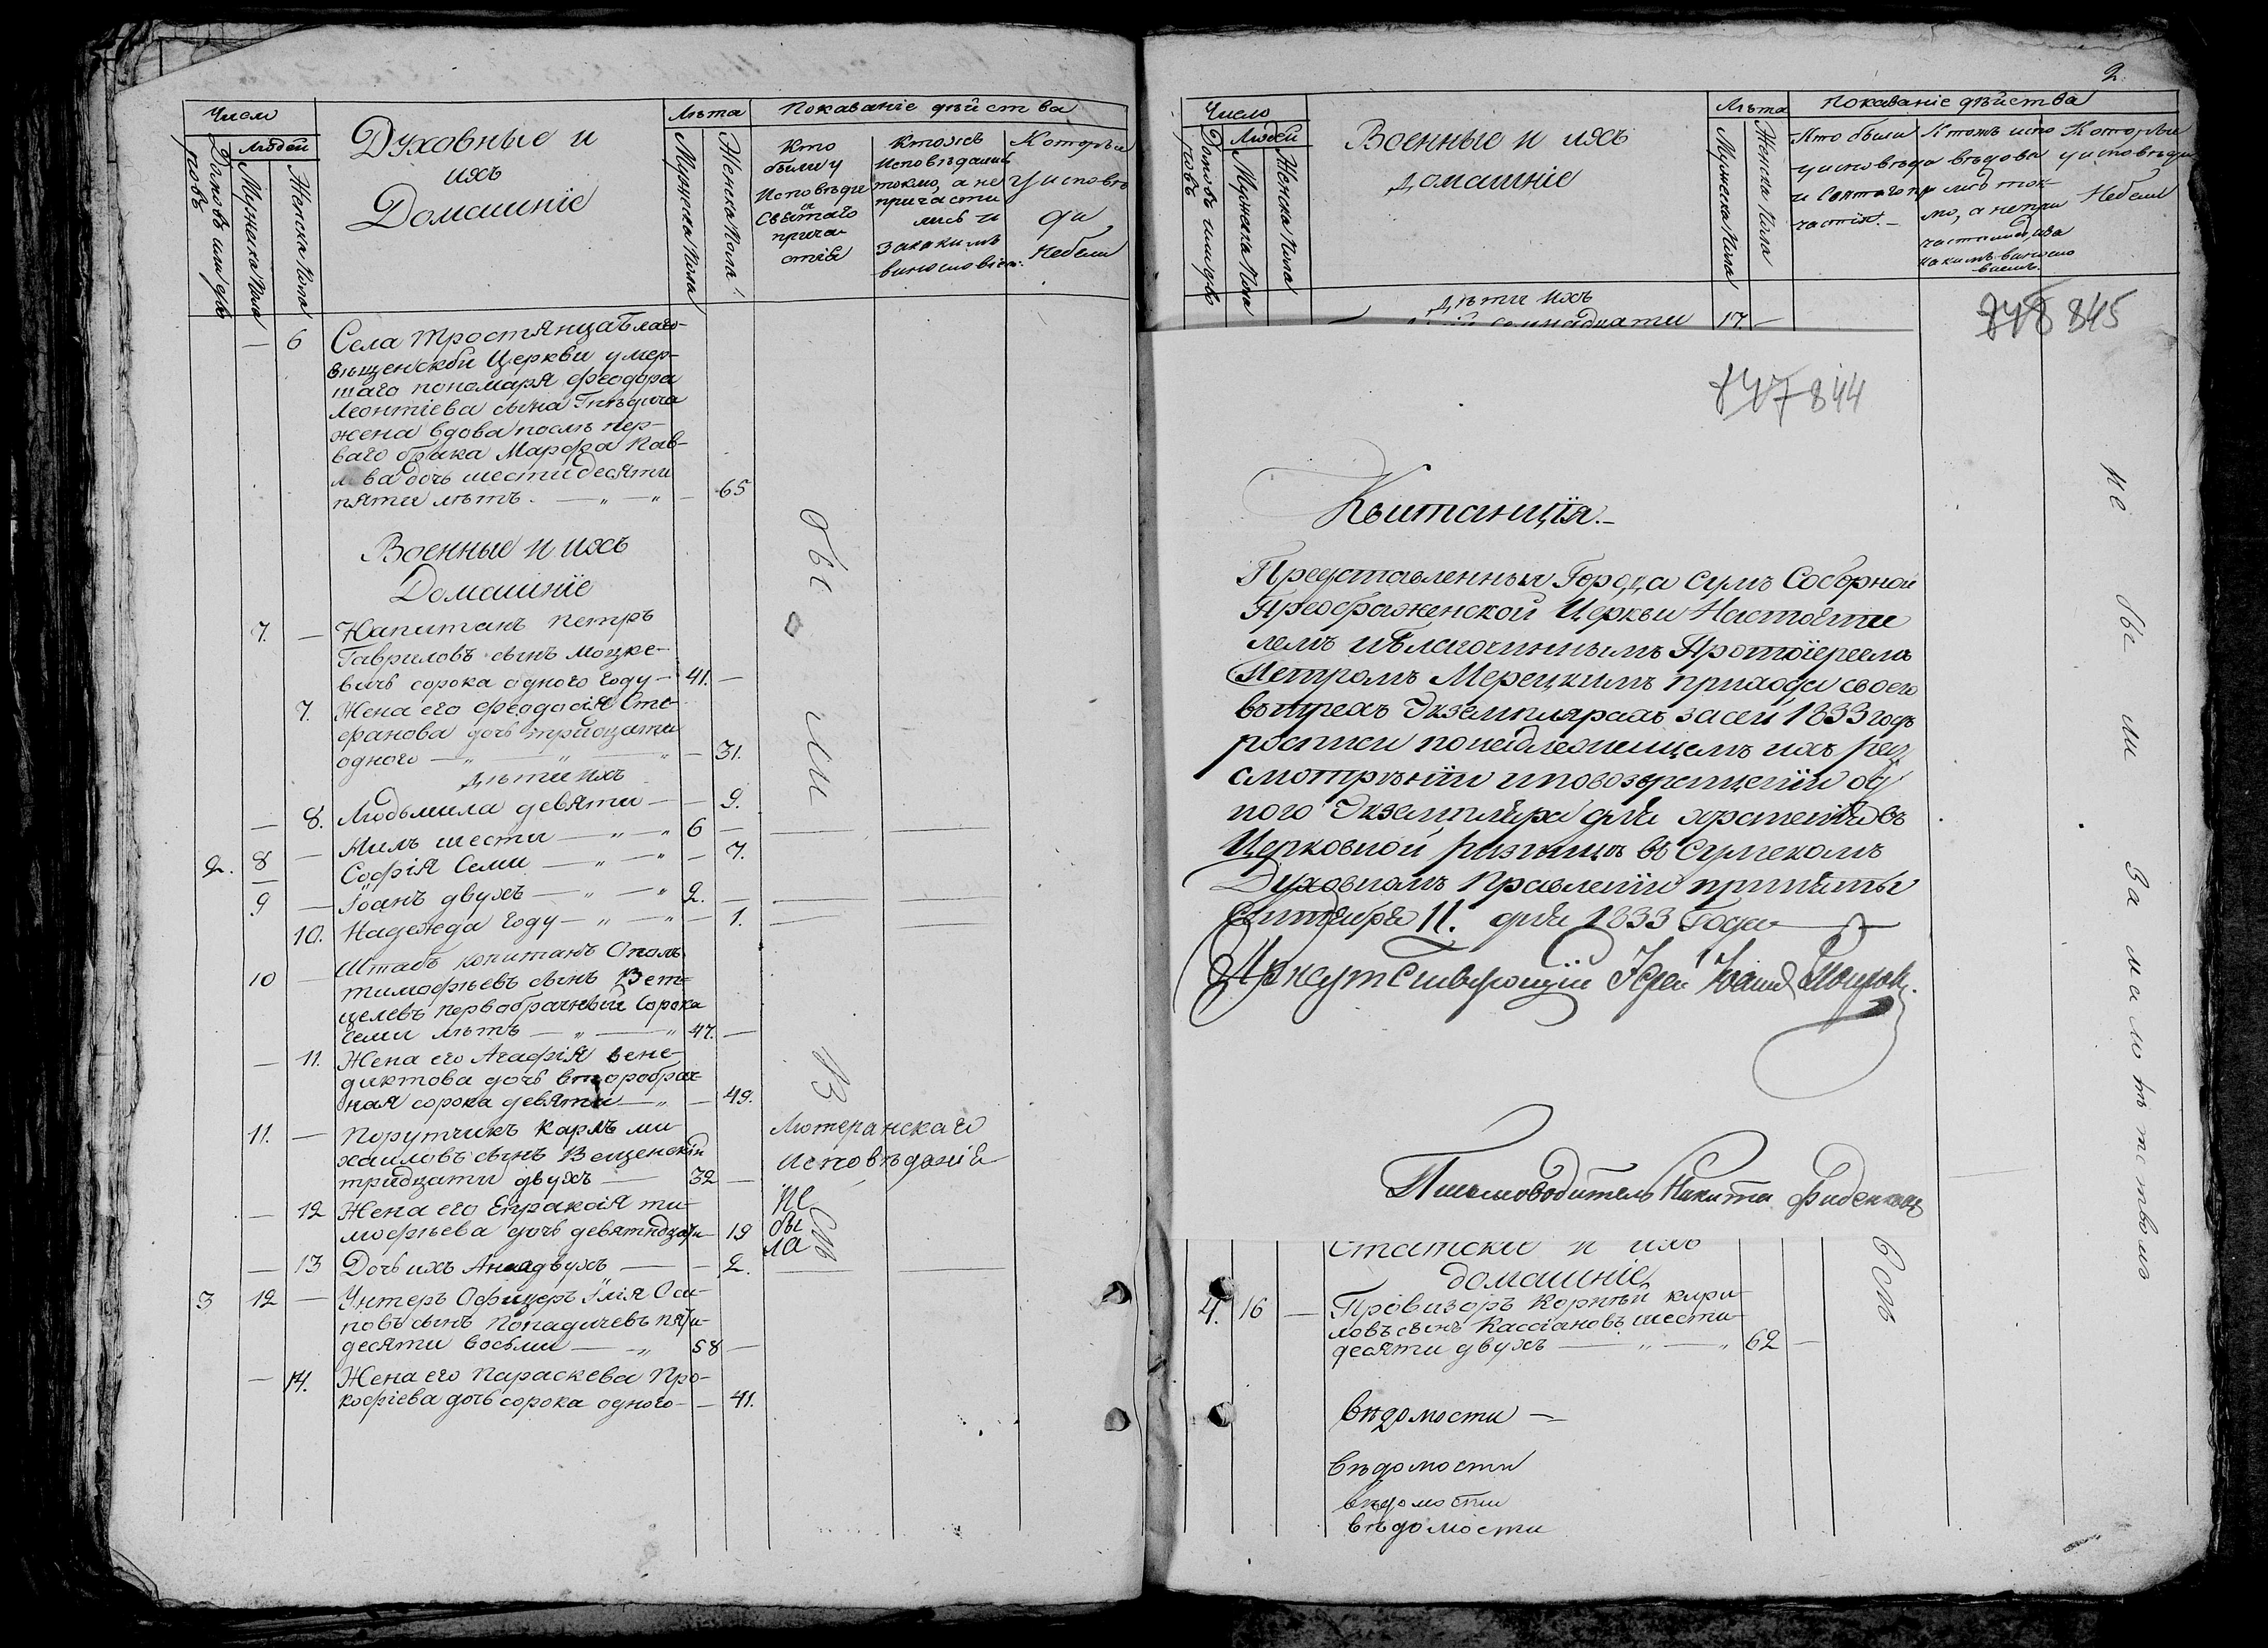 Число
Людей
Мужеска пола
Женска пола
Духовные и
ихъ
Домашніе
Лѣта
Мужеска пола
Женска пола
Показаніе дѣйства
Кто
были у
Исповѣди
и
Святаго
прича
стія
Ктожъ
Исповѣдались
токмо, а не
причасти
лись и
за какимъ
винословіем:
Которыи
у исповѣ
ди
Небыли
— 6 Села Тростянца Благо-
вѣщенской Церкви умер-
шаго пономаря Феодора
Леонтіева сына Гнѣдича
жена вдова послѣ пер-
ваго брака Марфа Пав-
лова дочь шестидесяти
пяти лѣтъ — „ — „ — 65
Военные и ихъ
Домашніе
7. — Капитанъ Петръ
Гавриловъ сынъ Моцке-
вичъ сорока одного году — 41. —
7. Жена его Феодосія Сте-
фанова дочь тридцати
одного — „ — „ — „ — 31.
Дѣти ихъ
— 8. Людьмила девяти — — 9.
Нилъ шести — „ — „ 6 —
2. 8 — Софія Семи — „ — „ — 7.
9 — Іоанъ двухъ — „ — „ 2. —
10. Надежда году — „ — „ — 1.
10 — Штабъ копитанъ
тимофѣевъ сынъ
первобрачный Сорока
семи лѣтъ — „ — „ 47. —
— 11. Жена его Агафія вене-
диктова дочь второбрач-
ная сорока девяти — „ — 49.
11. — Порутчикъ Карлъ ми-
хаиловъ сынъ
тридцати двухъ — 32 —
— 12 Жена его Евпраксія ти-
мофѣева дочь девятнадцати — 19
— 13 Дочь ихъ Анна двухъ — — 2.
3 12 — Унтеръ Офицеръ Илія Оси-
повъ сынъ Попадичевъ пяти-
десяти восьми — „ 58 —
— 14. Жена его Параскева Про-
кофіева дочь сорока одного — — 41.
Лютеранскаго
Исповѣданія
не
бы
ла
2
Число
Людей
Мужеска пола
Женска пола
Военные и ихъ
домашніе
Лѣта
Мужеска пола
Женска пола
Показаніе дѣйства
Кто были
у исповѣди
и Святаго при
частія. —
Ктожъ испо
вѣдова
лись ток-
мо, а непри
частились, и за
какимъ виносло
віемъ.
Которыи
у исповѣди
Небыли
Дѣти ихъ
семнадцати 17. —
848 845
847 844
Квитанція. —
Представленныя Города Сумъ Соборной
Преображенской Церкви Настояте
лемъ и Благочиннымъ Протоіереемъ
Петромъ Мерецкимъ прихода своего
въ трехъ Экземплярахъ за сей 1833 годъ
росписи по надлежащемъ ихъ раз
смотрѣніи и по возвращеніи од
ного Экземпляра для храненія въ
Церковной ризницѣ въ Сумскомъ
Духовномъ Правленіи приняты
Сентября 11. дня 1833 Года —
Присутствующій Іерей Іоанн
Письмоводитель Никита
не бы ли за малолѣтством
Статскіе и ихъ
домашніе
4. 16 — Провизоръ Корнѣй кири-
ловъ сынъ Кассіановъ шести-
десяти двухъ — „ — „ 62 —
вѣдомости —
вѣдомости
вѣдомости
вѣдомости